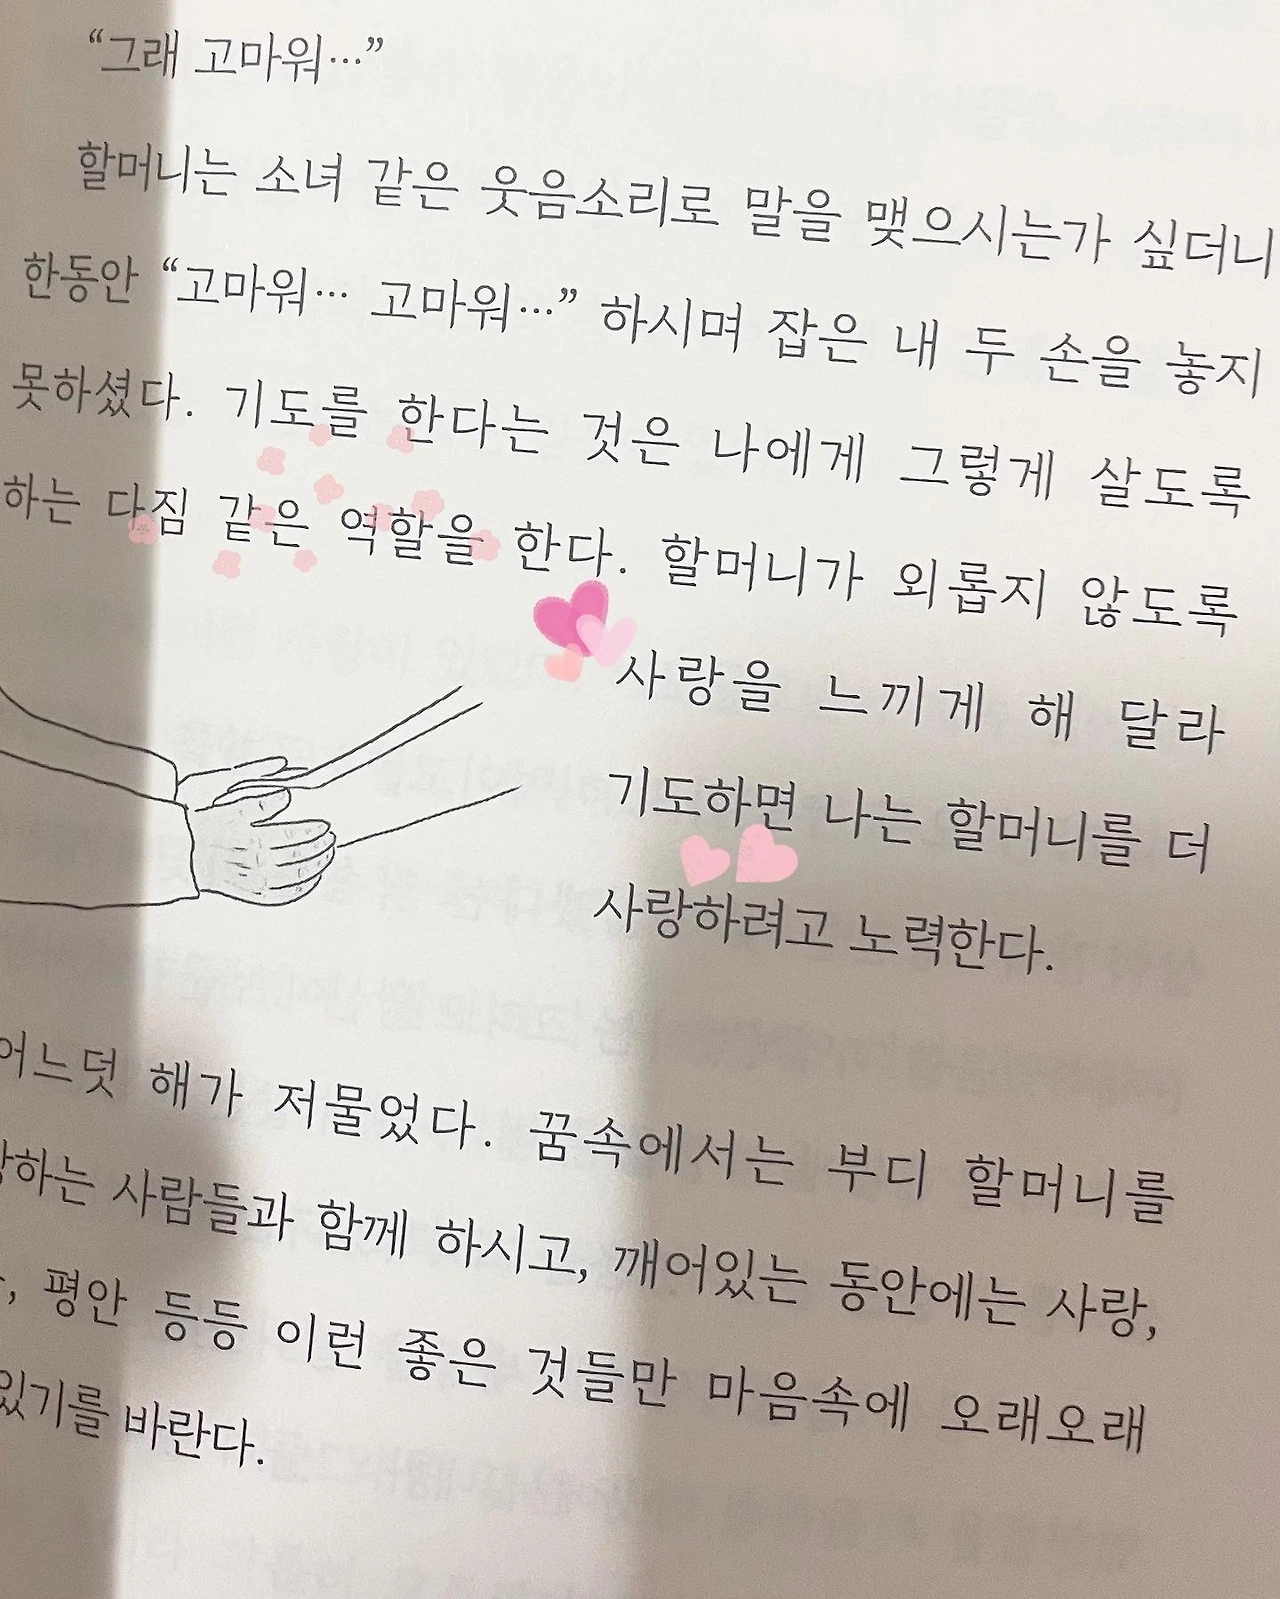 “그래 고마워…”
할머니는 소녀 같은 웃음소리로 말을 맺으시는가 싶더니
한동안 “고마워… 고마워…” 하시며 잡은 내 두 손을 놓지
못하셨다. 기도를 한다는 것은 나에게 그렇게 살도록
하는 다짐 같은 역할을 한다. 할머니가 외롭지 않도록
사랑을 느끼게 해 달라
기도하면 나는 할머니를 더
사랑하려고 노력한다.
어느덧 해가 저물었다. 꿈속에서는 부디 할머니를
사람들과 함께 하시고, 깨어있는 동안에는 사랑,
평안 등등 이런 좋은 것들만 마음속에 오래오래
있기를 바란다.